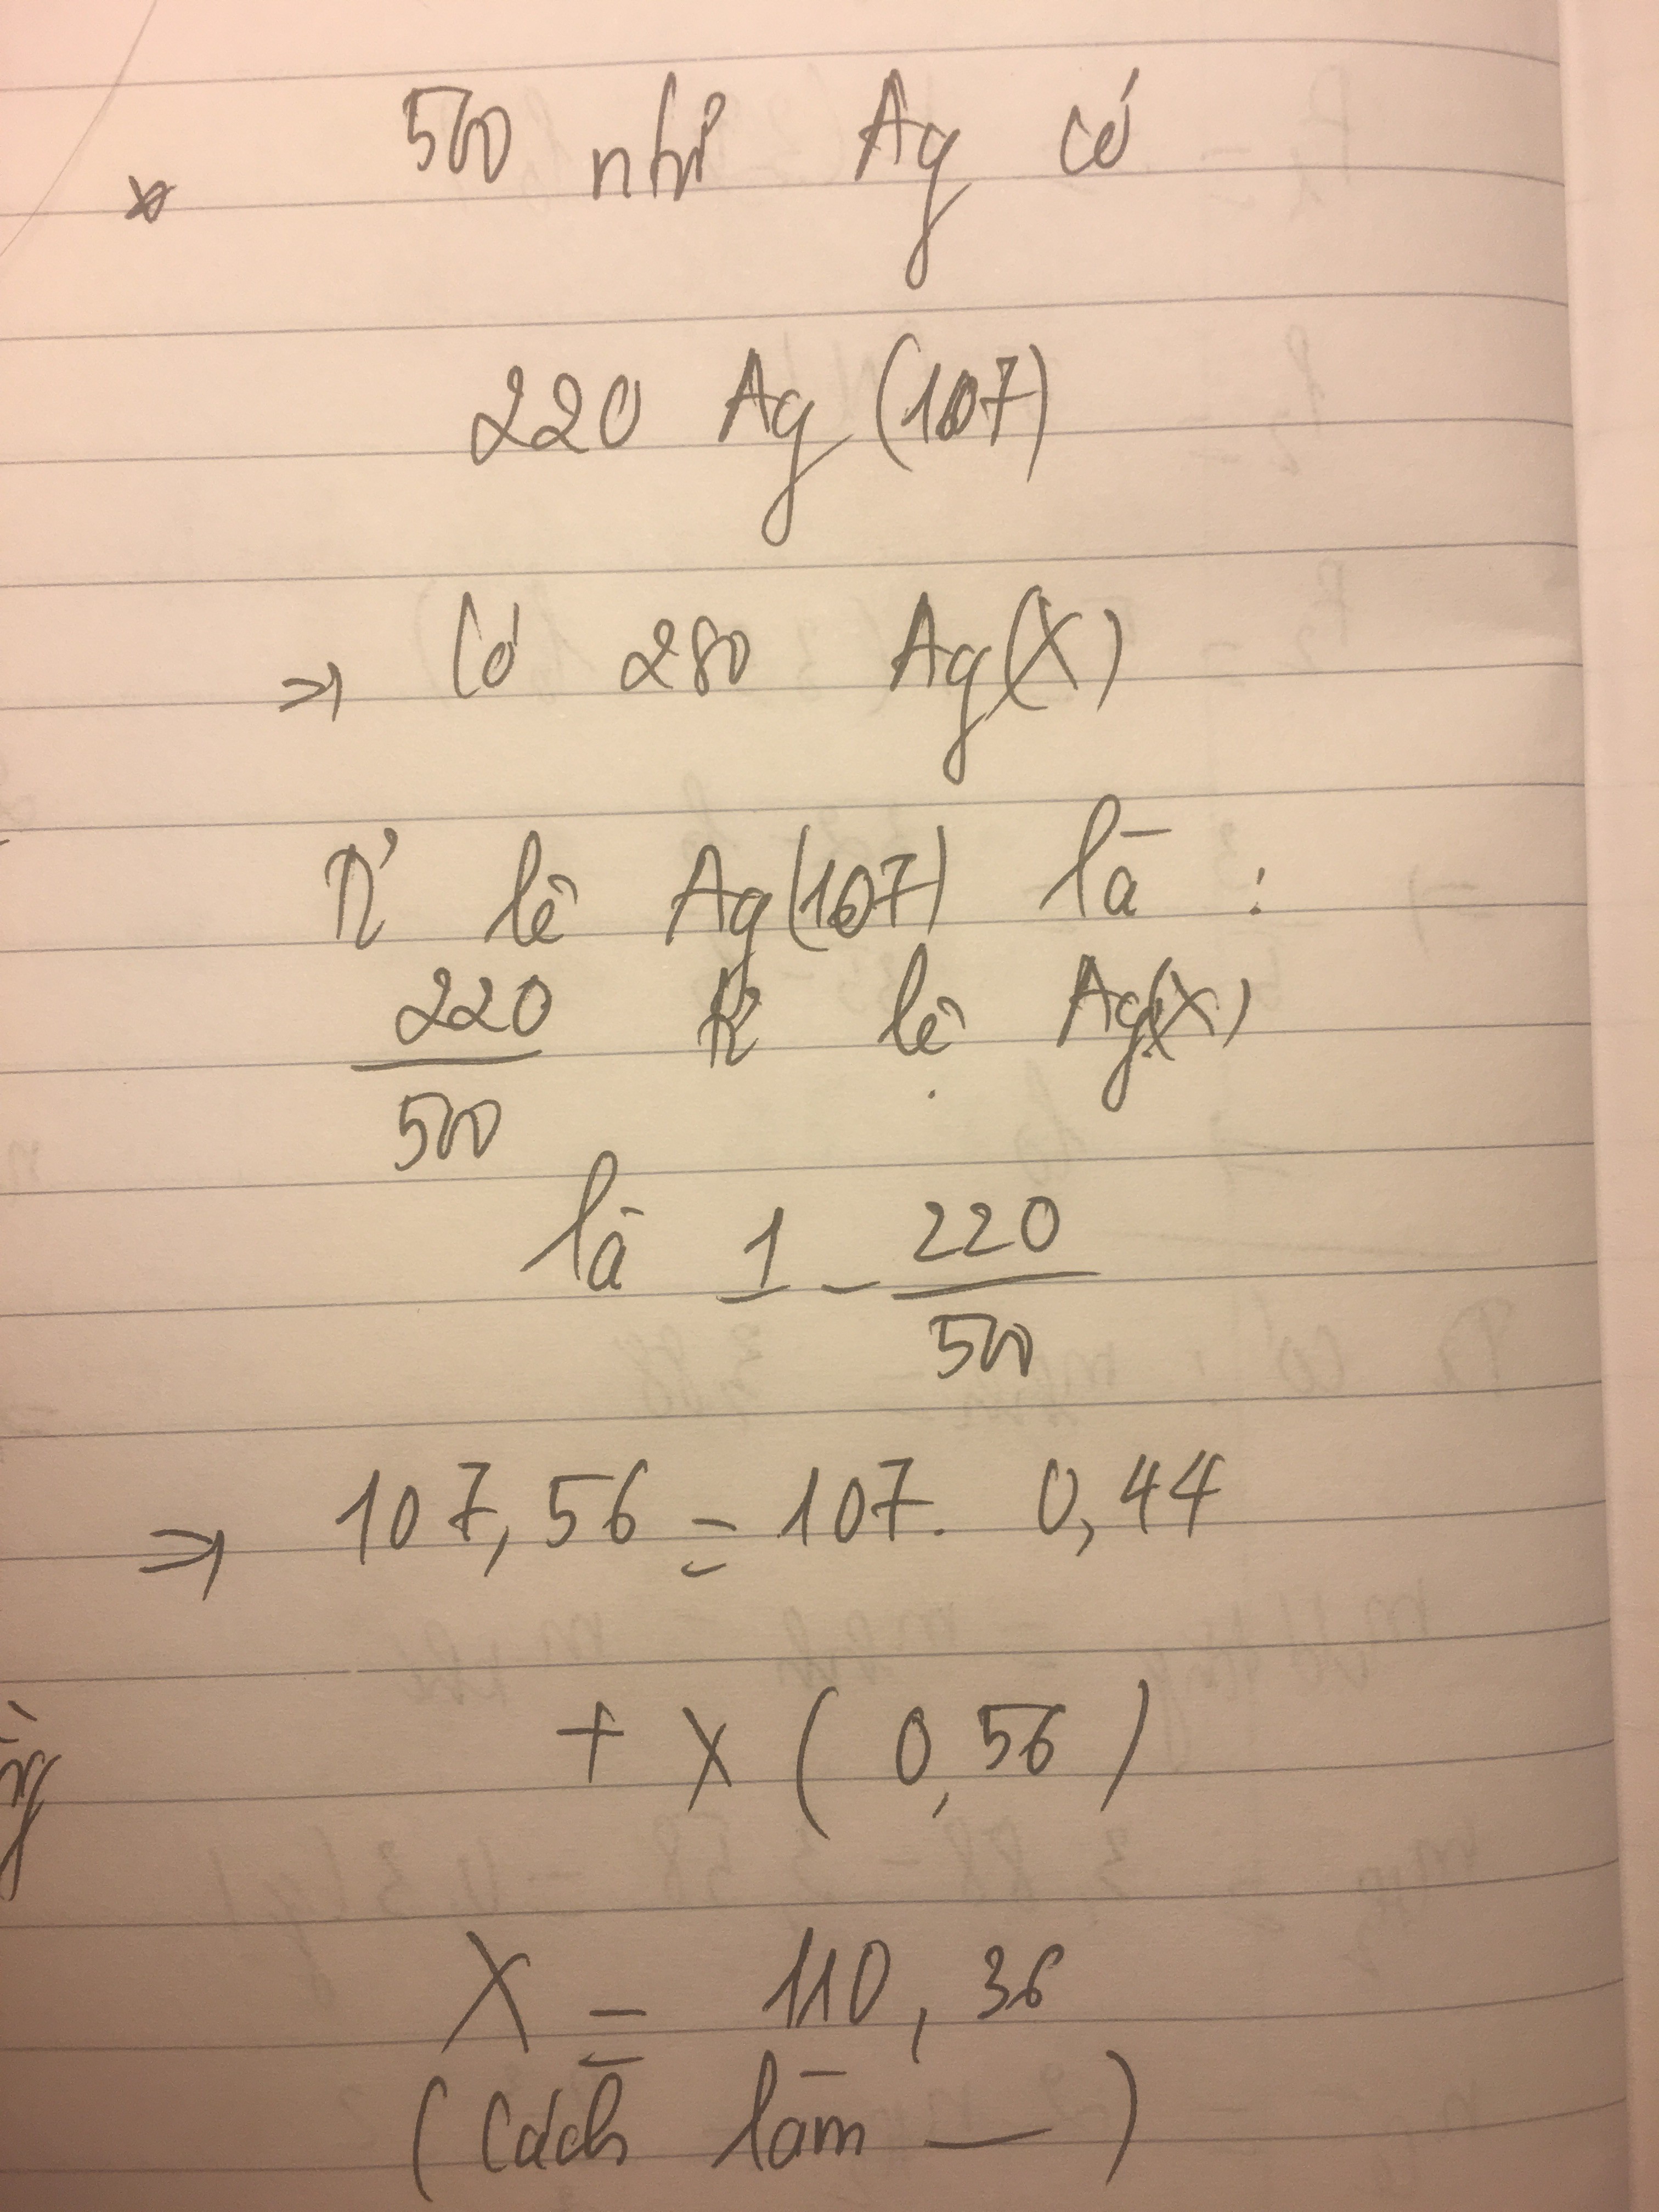 * 500 nhỉ Ag có
220 Ag (107)
=> Có 280 Ag(X)
Tỉ lệ Ag(107) là :
220/500 Tỉ lệ Ag(X)
là 1 - 220/500
=> 107,56 = 107. 0,44
+ X ( 0,56 )
X = 110,36
(Cách làm —)